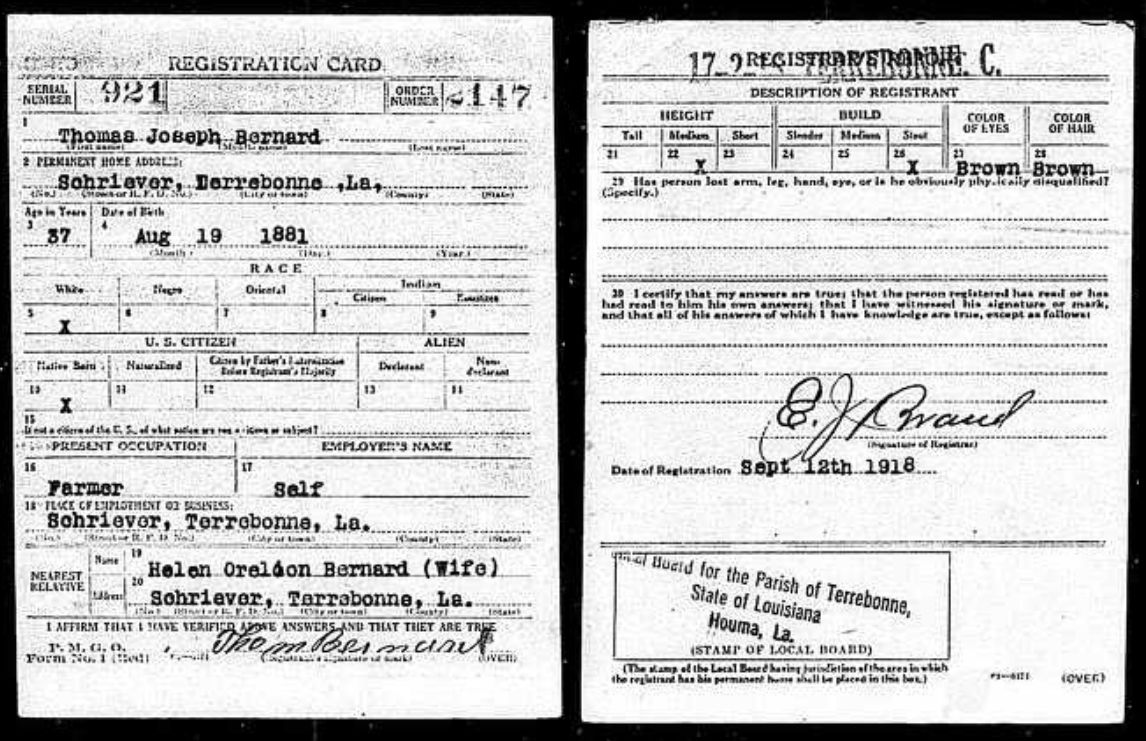 REGISTRATION CARD
SERIAL NUMBER 921 ORDER NUMBER 2147
1 Thomas Joseph Bernard
(First name) (Middle name) (Last name)
2 PERMANENT HOME ADDRESS:
Schriever, Derrebonne ,La,
(No.) (Street or R. F. D. No.) (City or town) (County) (State)
Age in Years Date of Birth
3 37 4 Aug 19 1881
(Month) (Day) (Year)
RACE
White Negro Oriental Indian
Citizen Noncitizen
5 6 7 8 9
X
U. S. CITIZEN ALIEN
Native Born Naturalized Citizen by Father's Naturalization Before Registrant's Majority Declarant Non-declarant
10 11 12 13 14
X
15
If not a citizen of the U. S., of what nation are you a citizen or subject?
PRESENT OCCUPATION EMPLOYER'S NAME
16 17
Farmer Self
18 PLACE OF EMPLOYMENT OR BUSINESS:
Schriever, Terrebonne, La.
(No.) (Street or R. F. D. No.) (City or town) (County) (State)
NEAREST RELATIVE Name 19 Helen Oreldon Bernard (Wife)
Address 20 Schriever, Terrebonne, La.
(No.) (Street or R. F. D. No.) (City or town) (County) (State)
I AFFIRM THAT I HAVE VERIFIED ABOVE ANSWERS AND THAT THEY ARE TRUE
P. M. G. O.
Form No. 1 (Red) Thom Bernard
(Registrant's signature or mark) (OVER)
17 2 REGISTRAR'S REPORT TERREBONNE. C.
DESCRIPTION OF REGISTRANT
HEIGHT BUILD COLOR OF EYES COLOR OF HAIR
Tall Medium Short Slender Medium Stout
21 22 X 23 24 25 26 X 27 Brown 28 Brown
29 Has person lost arm, leg, hand, eye, or is he obviously physically disqualified?
(Specify.)
30 I certify that my answers are true; that the person registered has read or has
had read to him his own answers; that I have witnessed his signature or mark,
and that all of his answers of which I have knowledge are true, except as follows:
E. J. Braud
(Signature of Registrar)
Date of Registration Sept 12th 1918
Local Board for the Parish of Terrebonne,
State of Louisiana
Houma, La.
(STAMP OF LOCAL BOARD)
(The stamp of the Local Board having jurisdiction of the area in which
the registrant has his permanent home shall be placed in this box.)
(OVER)